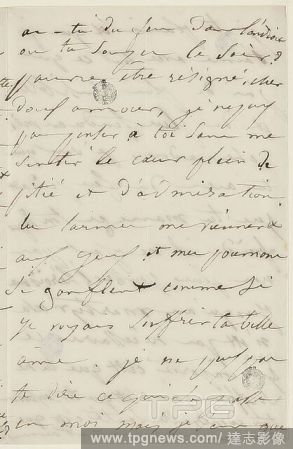 as-tu du feu dans
ou tu songes le soir ?
pauvre être résigné, cher
doux amour, je ne puis
pas penser à toi sans me
sentir le cœur plein de
pitié et d'admiration
les larmes me viennent
aux yeux et mes poumons
se gonflent comme si
je voyais souffrir ta belle
âme. je ne puis pas
te dire ce qui se passe
en moi mais je
TPG
www.tpgnews.com / 達志影像